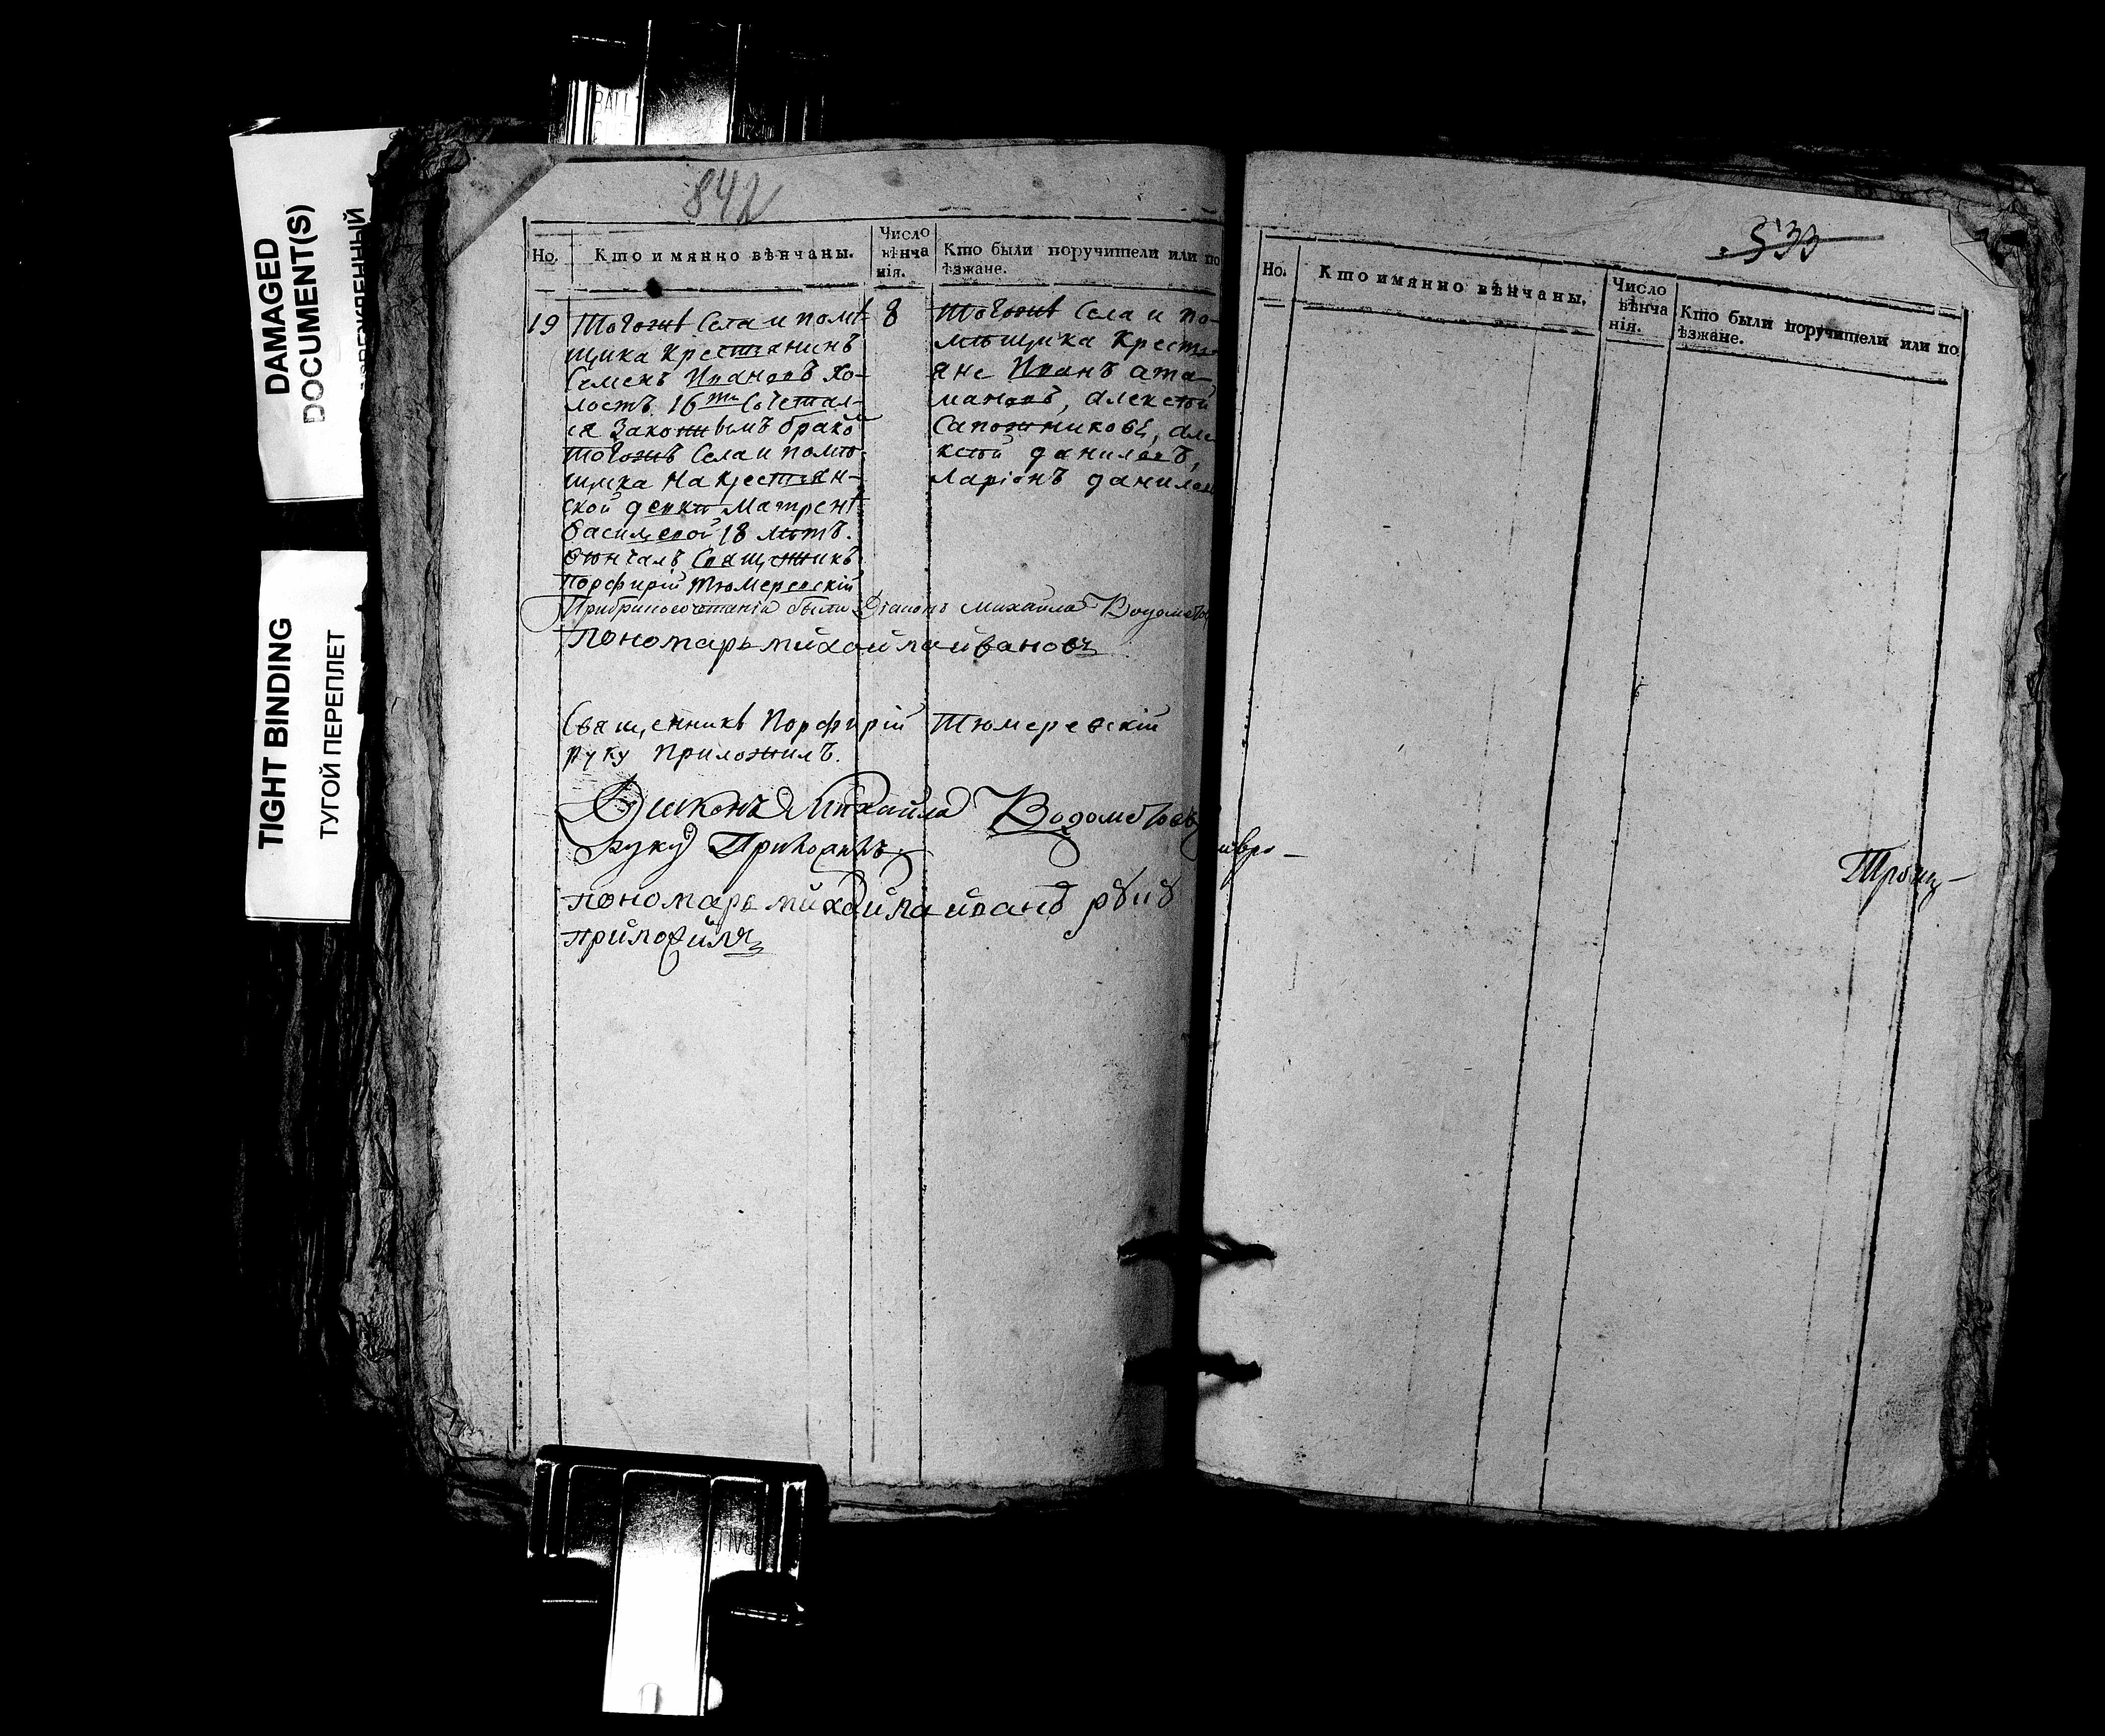 DAMAGED
DOCUMENT(S)
TIGHT BINDING
ТУГОЙ ПЕРЕПЛЕТ
842
Но.
Кто имянно вѣнчаны.
Число
вѣнча
нія.
Кто были поручители или по
ѣзжане.
19
Тогожъ Села и помѣ-
щика Крестьянинъ
Семенъ Ивановъ хо-
лостъ 16ти Сочетал-
ся Законнымъ бракомъ
тогожъ Села и помѣ-
щика на крестьян-
ской девки Матренѣ
Васильевой 18 лѣтъ.
вѣнчалъ Священникъ
Порфирій Тюмеревскій
8
Тогожъ Села и по-
мѣщика Кресть-
яне Иванъ ата-
мановъ, Алексѣй
Сапожниковъ, Але
ксѣй даниловъ,
Ларіонъ данилов
При бракосочетаніи были Діаконъ Михайла Водоме
пономарь михайла ивановъ
Священникъ Порфирій Тюмеревскій
руку приложилъ.
Діаконъ Михайла
руку Приложилъ
пономарь михайла иванов руку
приложилъ
533
Но.
Кто имянно вѣнчаны.
Число
вѣнча
нія.
Кто были поручители или по
ѣзжане.
Троиц-